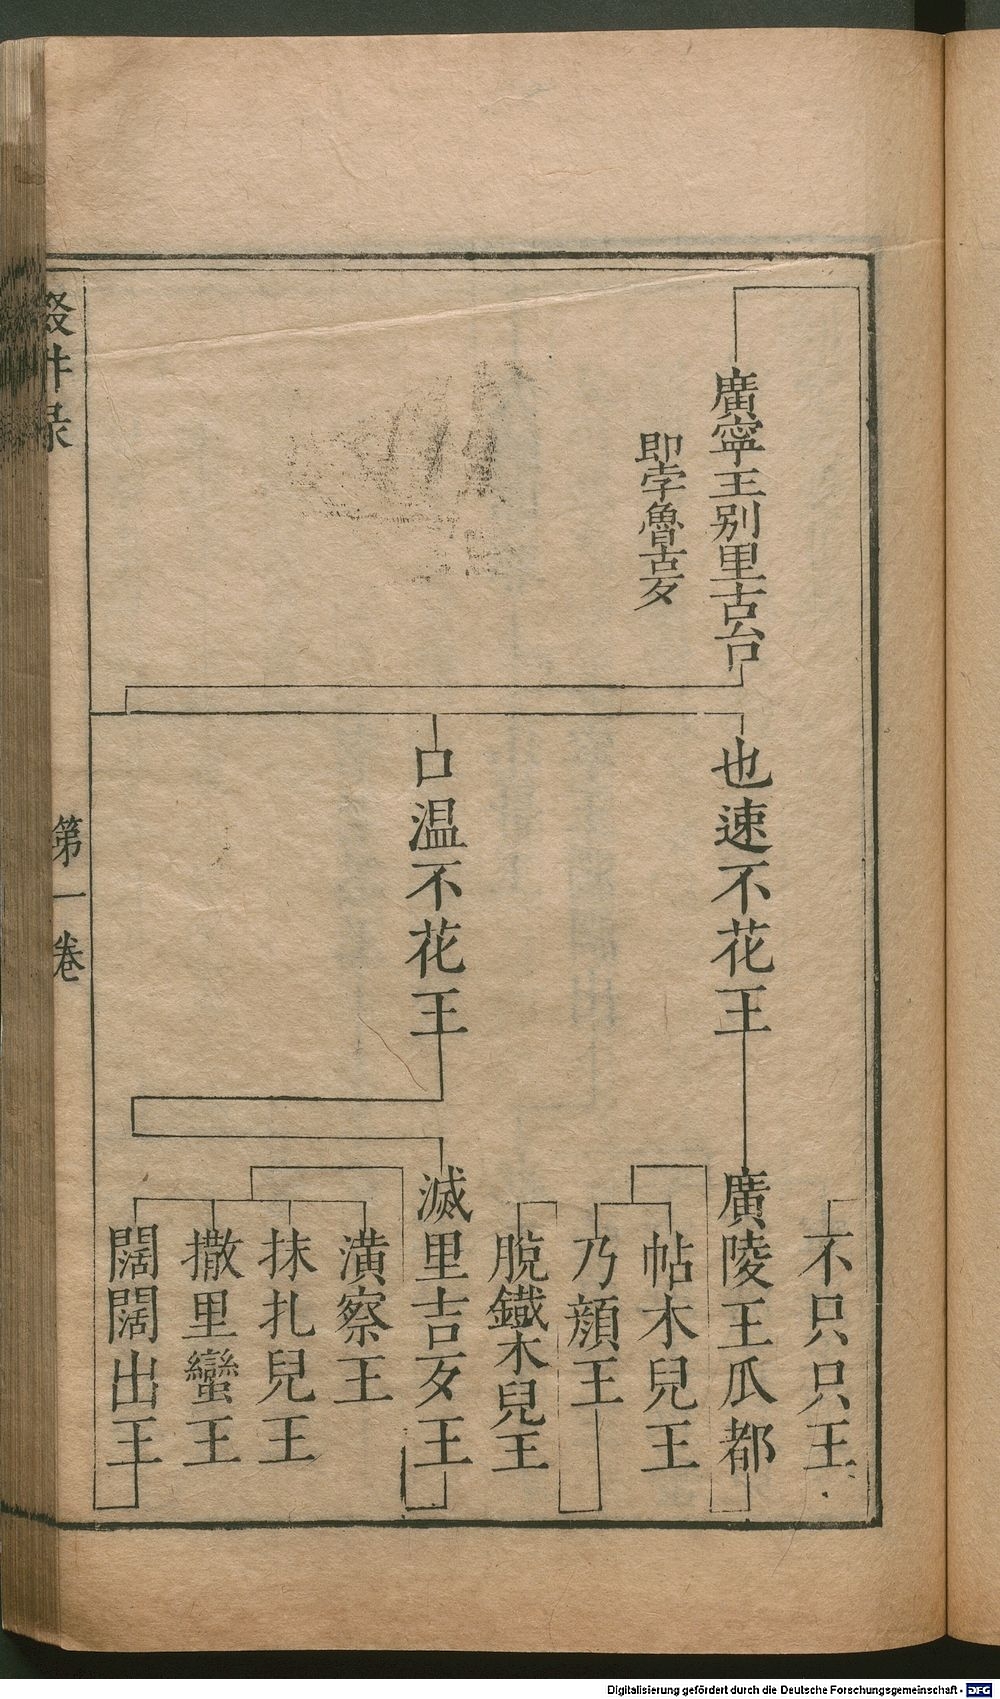 廣寧王別里古台
即孛魯古歹
也速不花王
口温不花王
不只只王
廣陵王瓜都
帖木兒王
乃顔王
脫鐵木兒王
滅里吉歹王
潢察王
抹扎兒王
撒里蠻王
闊闊出王
輟畊录
第一卷
Digitalisierung gefördert durch die Deutsche Forschungsgemeinschaft - DFG